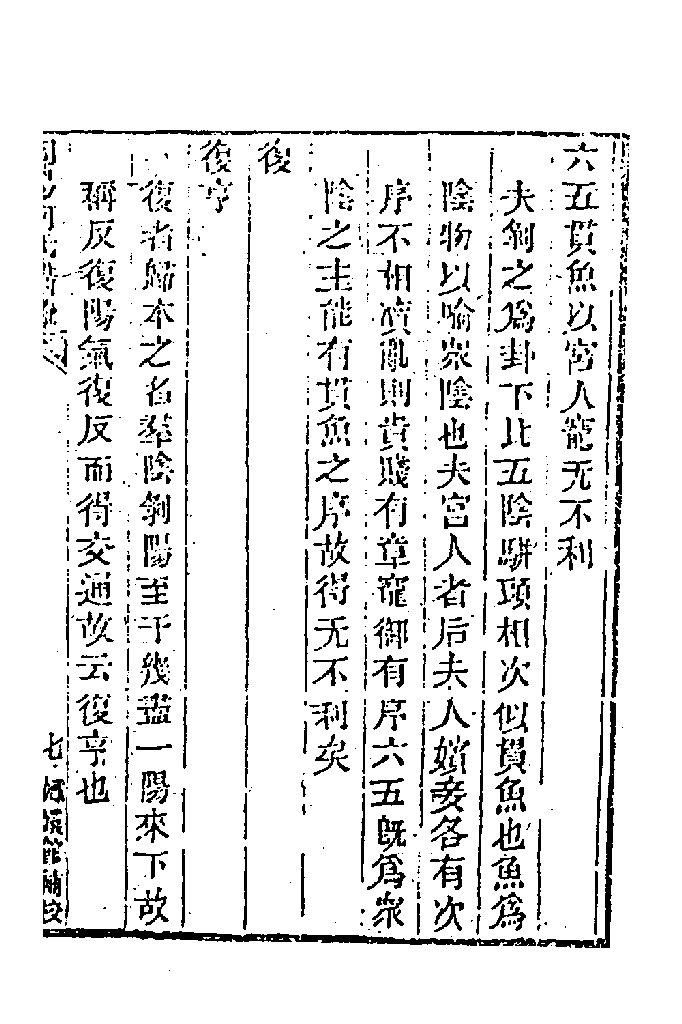 六五貫魚以宮人寵无不利
夫剝之爲卦下比五陰騈頭相次似貫魚也魚爲
陰物以喻衆陰也夫宮人者后夫人嬪妾各有次
序不相瀆亂則貴賤有章寵御有序六五旣爲衆
陰之主能有貫魚之序故得无不利矣
復
復亨
復者歸本之名羣陰剝陽至于幾盡一陽來下故
稱反復陽氣復反而得交通故云復亨也
七